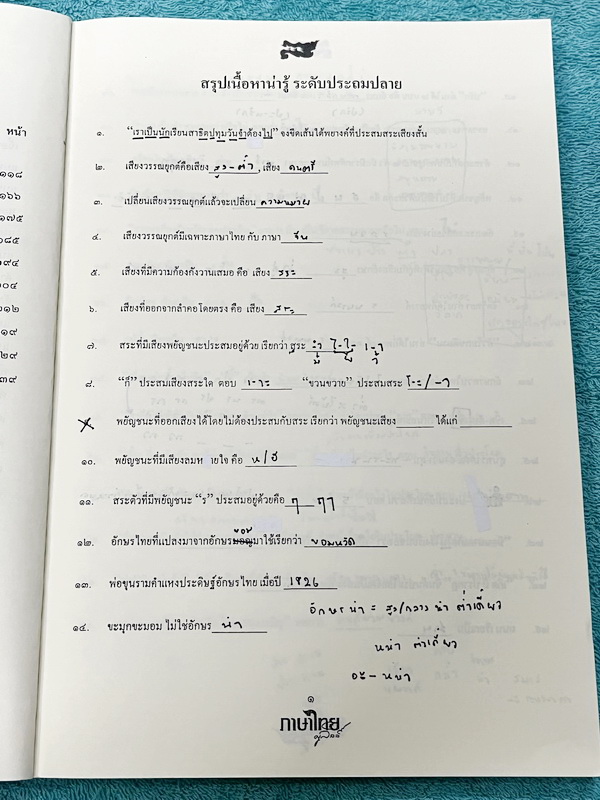 หน้า
๑๑๘
๑๖๖
๑๗๕
๑๘๕
๑๙๔
๒๐๔
๒๑๒
๒๑๙
๒๒๙
๒๓๙
สรุปเนื้อหาน่ารู้ ระดับประถมปลาย
๑. "เราเป็นนักเรียนสาธิตปทุมวันจำต้องไป" จงขีดเส้นใต้พยางค์ที่ประสมสระเสียงสั้น
๒. เสียงวรรณยุกต์คือเสียง สูง-ต่ำ , เสียง ดนตรี
๓. เปลี่ยนเสียงวรรณยุกต์แล้วจะเปลี่ยน ความหมาย
๔. เสียงวรรณยุกต์มีเฉพาะภาษาไทย กับ ภาษา จีน
๕. เสียงที่มีความก้องกังวานเสมอ คือ เสียง สระ
๖. เสียงที่ออกจากลำคอโดยตรง คือ เสียง สระ
๗. สระที่มีเสียงพยัญชนะประสมอยู่ด้วย เรียกว่า สระ -ำ ใ-ไ- เ-า
๘. "ก็" ประสมเสียงสระใด ตอบ เ-าะ "ขวนขวาย" ประสมสระ โ-ะ/-า
พยัญชนะที่ออกเสียงได้โดยไม่ต้องประสมกับสระ เรียกว่า พยัญชนะเสียง ได้แก่
๑๐. พยัญชนะที่มีเสียงลมหายใจ คือ ห/ฮ
๑๑. สระตัวที่มีพยัญชนะ "ร" ประสมอยู่ด้วยคือ ฤ ฤๅ
๑๒. อักษรไทยที่แปลงมาจากอักษรมอญมาใช้เรียกว่า ขอมหวัด
๑๓. พ่อขุนรามคำแหงประดิษฐ์อักษรไทย เมื่อปี 1826
อักษรนำ = สูง/กลาง นำ ต่ำเดี่ยว
๑๔. ขะมุกขะมอม ไม่ใช่อักษร นำ
หนำ ต่ำเดี่ยว
๑
ภาษาไทย